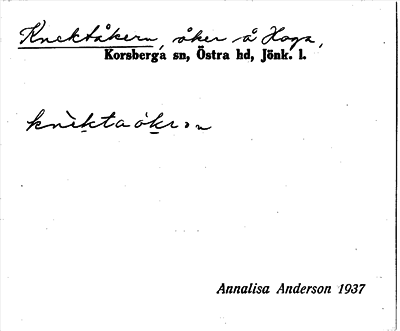 Knektåkern, åker å Haga,
Korsberga sn, Östra hd, Jönk. l.
Annalisa Anderson 1937